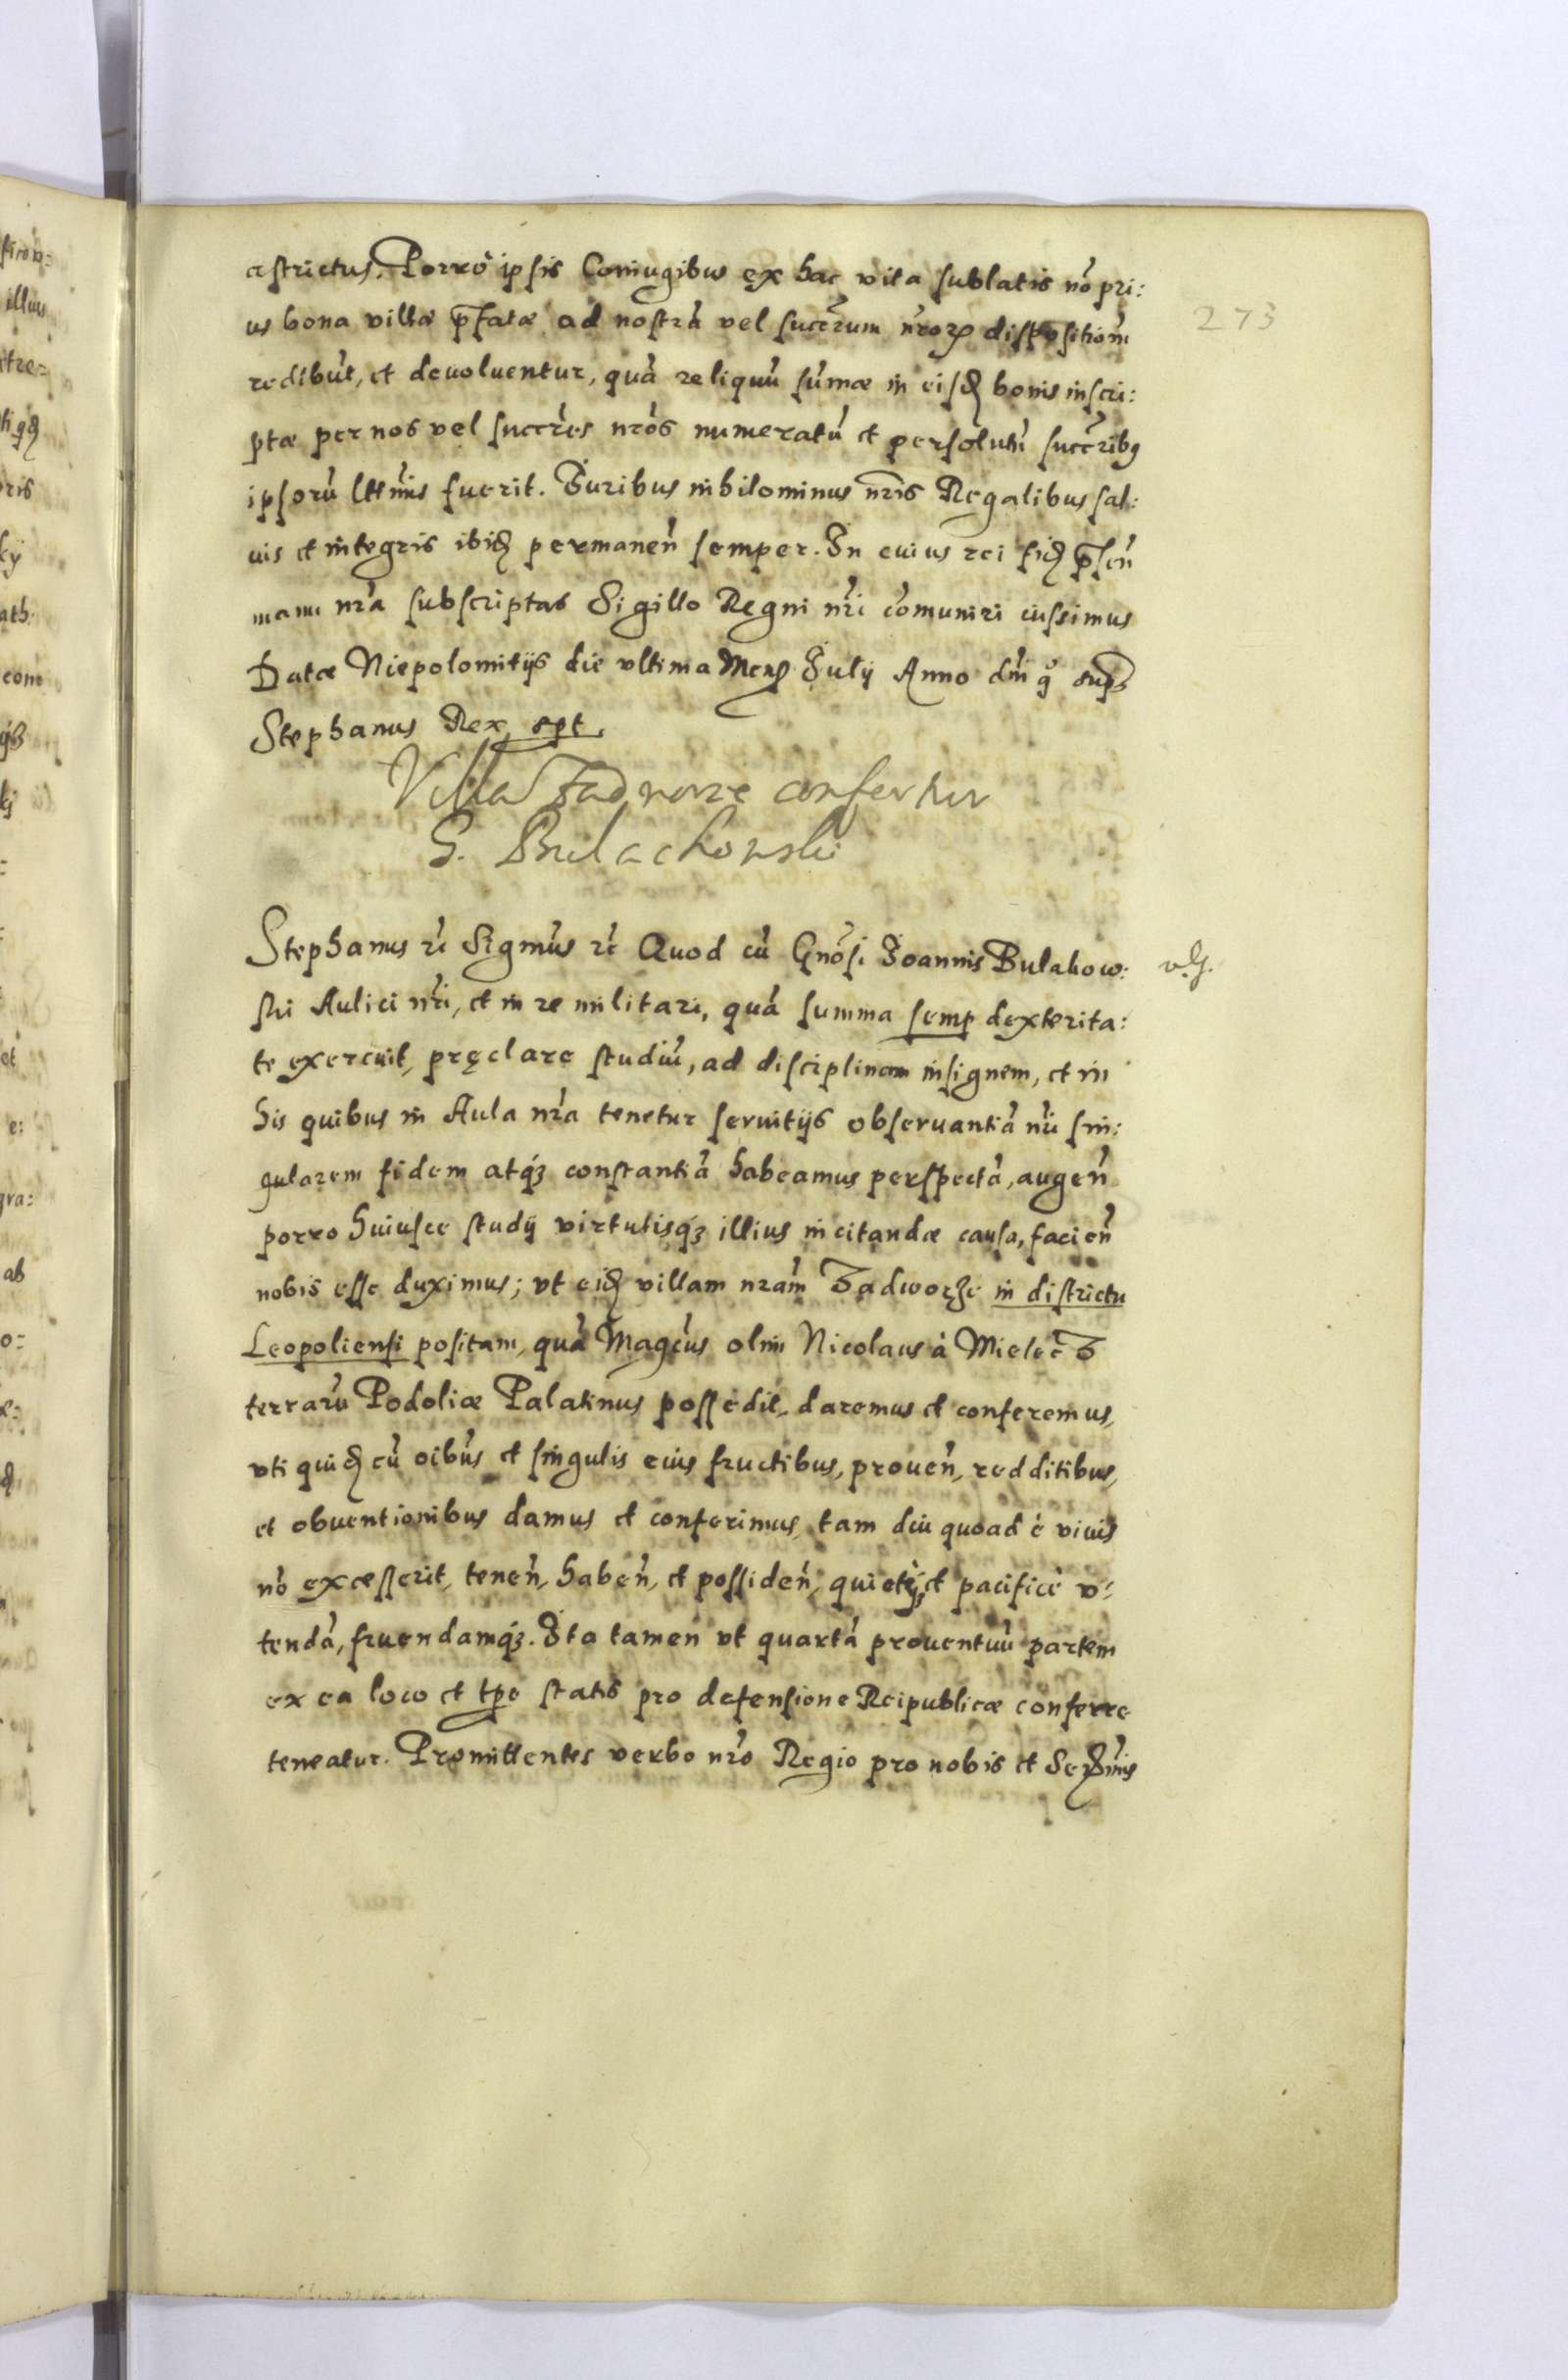 astrictus. Porrò ipsis Coniugibus ex hac vita sublatis nõ pri:
us bona villæ p̃fatæ ad nostrã vel succr̃um nr̃orꝝ dispositiom̃
redibũt, et devoluentur, quã reliquũ sũmæ in eisdȝ bonis inscri:
ptæ per nos vel succr̃es nr̃os numeratũ et persolutũ succr̃ibꝯ
ipsorũ lttm̃is fuerit. Iuribus nihilominus nr̃is Regalibus sal:
uis et integris ibidȝ permaneñ semper. In cuius rei fidȝ p̃señ
manu nr̃a subscriptas Sigillo Regni nr̃i cõmuniri iussimus
Datæ Niepolomitijs die vltima Menẜ Iulij Anno dñi qͦ supͣ
Stephanus Rex sp̱t.
Villa Zadworze confertur
G. Bulachowski
Stephanus rc̃ Sigm̃us rc̃ Quod cũ Gnõsi Ioannis Bulakow:
ski Aulici nr̃i, et in re militari, quã summa semp dexterita:
te exercuit, pręclare studiũ, ad disciplinam insignem, et in
his quibus in Aula nr̃a tenetur seruitijs obseruantiã nũ sin:
gularem fidem atqȝ constantiã habeamus perspectã, augeñ
porro huiusce studij virtutisqȝ illius incitandæ causa, facieñ
nobis esse duximus; vt eidȝ villam nram̃ Zadworze in districtu
Leopoliensi positam, quã Magc̃us olim Nicolaus à Mielec Z
terrarũ Podoliæ Palatinus possedit, daremus et conferemus,
vti quidȝ cũ oibũs et singulis eius fructibus, proueñ, redditibus,
et obuentionibus damus et conferimus, tam diu quoad è viuis
nõ excesserit, teneñ, habeñ, et possideñ, quietè, et pacificè v:
tendã, fruendamqȝ. Ita tamen vt quartã prouentuũ partem
ex ea loco et tp̱e statis pro defensione Reipublicæ conferre
teneatur. Promittentes verbo nr̃o Regio pro nobis et Serm̃is
273